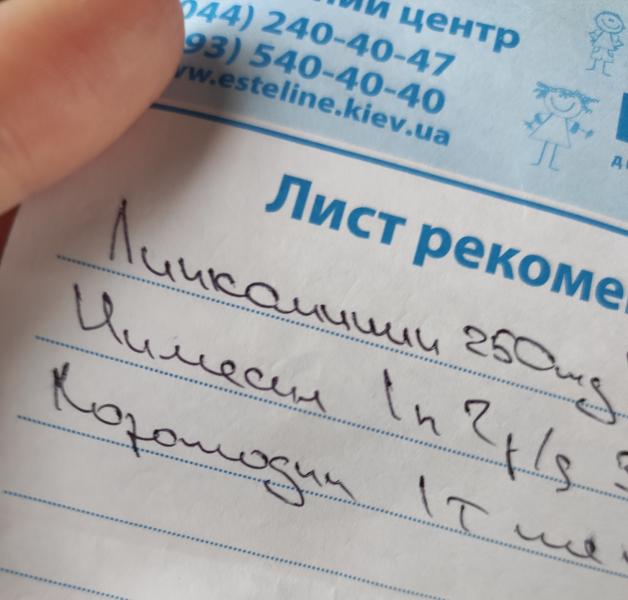 ний центр
044) 240-40-47
93) 540-40-40
ww.esteline.kiev.ua
Лист рекоме
Линкомицин 250mg
Нимесил 1п 2р/д 3
1т